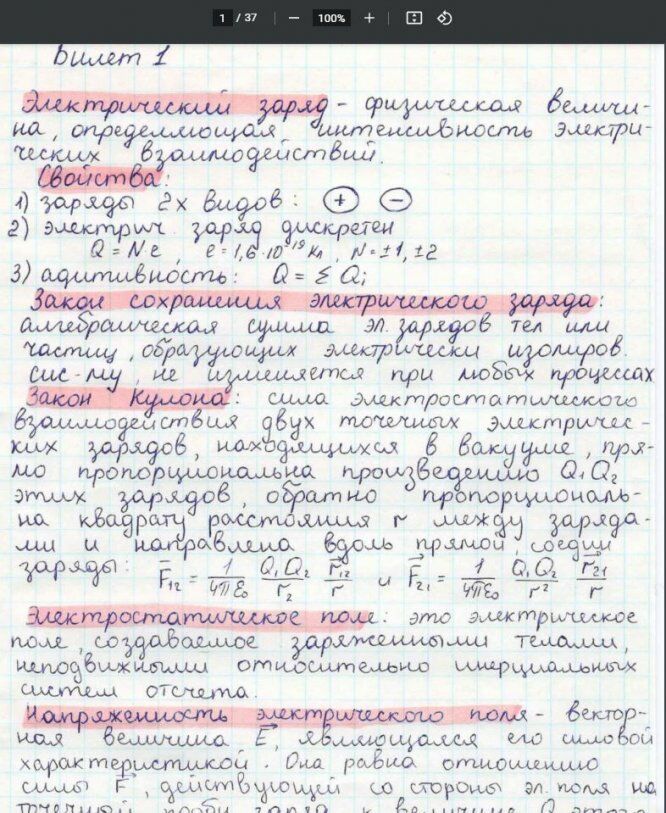 1 / 37 — 100% +
Билет 1
Электрический заряд - физическая величи-
на, определяющая интенсивность электри-
ческих взаимодействий.
Свойства:
1) заряды 2х видов: + −
2) электрич. заряд дискретен
Q = Ne, e = 1,6·10⁻¹⁹ Кл, N = ±1, ±2
3) адитивность: Q = Σ Qi
Закон сохранения электрического заряда:
алгебраическая сумма эл. зарядов тел или
частиц, образующих электрически изолиров.
сис-му, не изменяется при любых процессах
Закон Кулона: сила электростатического
взаимодействия двух точечных электричес-
ких зарядов, находящихся в вакууме, пря-
мо пропорциональна произведению Q₁Q₂
этих зарядов, обратно пропорциональ-
на квадрату расстояния r между заряда-
ми и направлена вдоль прямой, соедин
заряды: F₁₂ = 1/4πε₀ Q₁Q₂/r₂ r₁₂/r и F₂₁ = 1/4πε₀ Q₁Q₂/r² r₂₁/r
Электростатическое поле: это электрическое
поле, создаваемое заряженными телами,
неподвижными относительно инерциальных
систем отсчета.
Напряженность электрического поля - вектор-
ная величина E, являющаяся его силовой
характеристикой. Она равна отношению
силы F, действующей со стороны эл. поля на